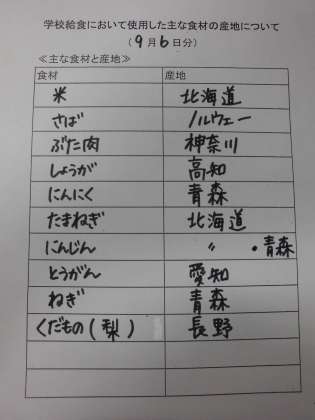 学校給食において使用した主な食材の産地について
(9月6日分)
≪主な食材と産地≫
食材 産地
米 北海道
さば ノルウェー
ぶた肉 神奈川
しょうが 高知
にんにく 青森
たまねぎ 北海道
にんじん 〃 ・青森
とうがん 愛知
ねぎ 青森
くだもの(梨) 長野